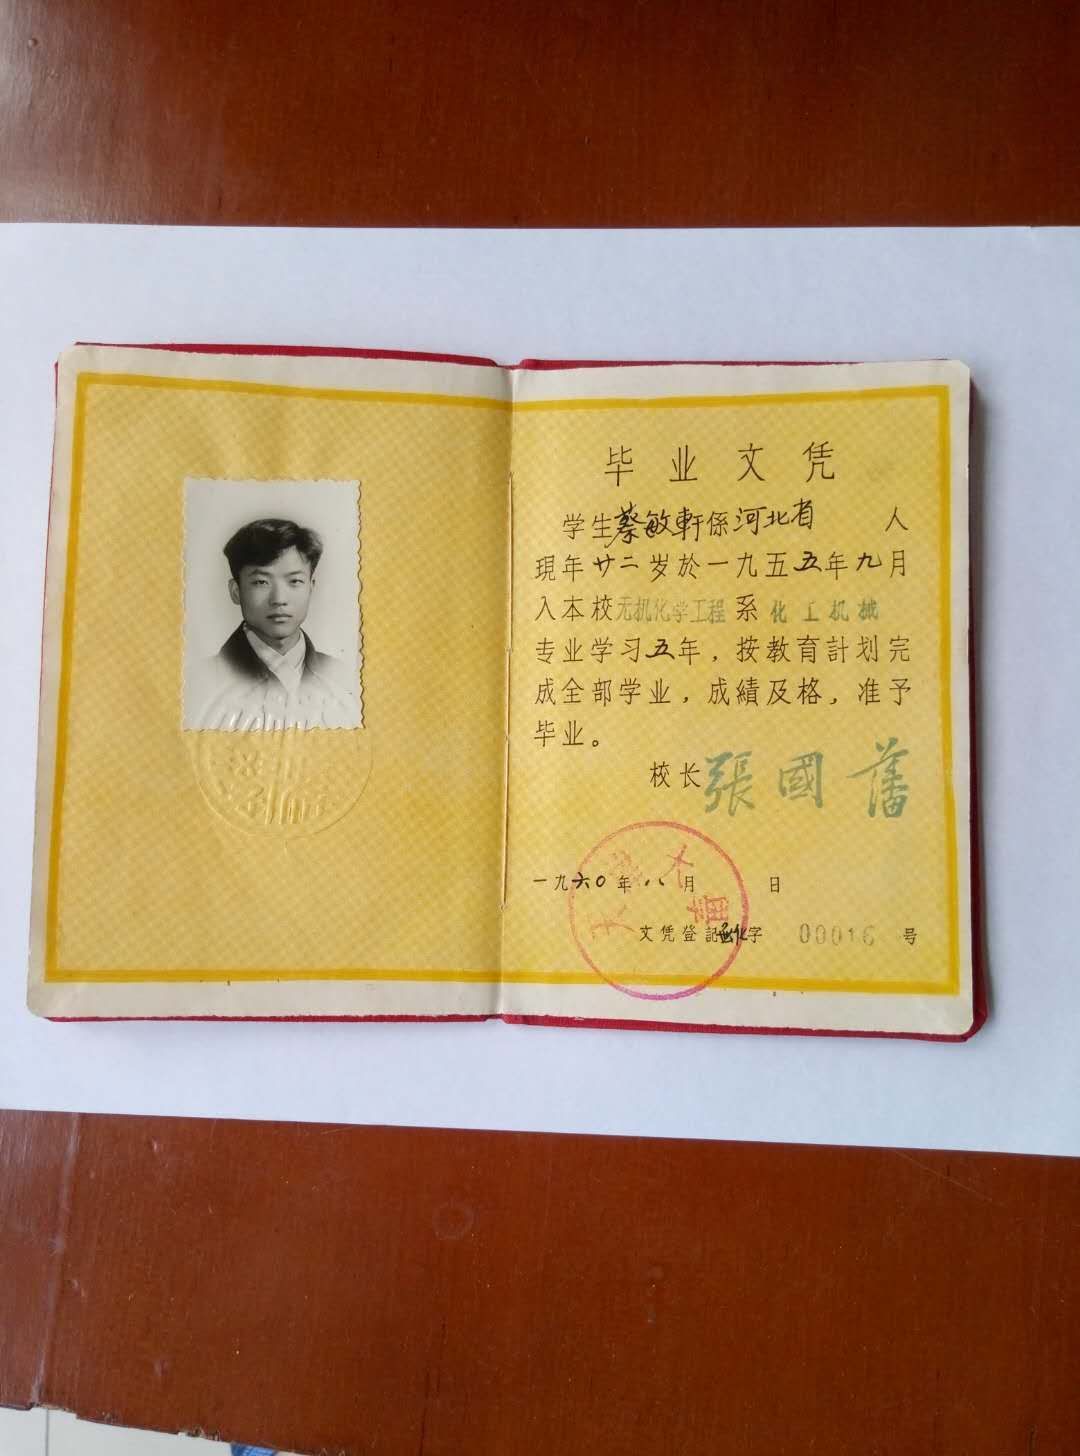 毕业文凭
学生蔡敏軒係河北省人
現年廿二岁於一九五五年九月
入本校无机化学工程系化工机械
专业学习五年，按教育計划完
成全部学业，成績及格，准予
毕业。
校长張國藩
一九六〇年八月 日
文凭登記 化字 00016 号
天津大學